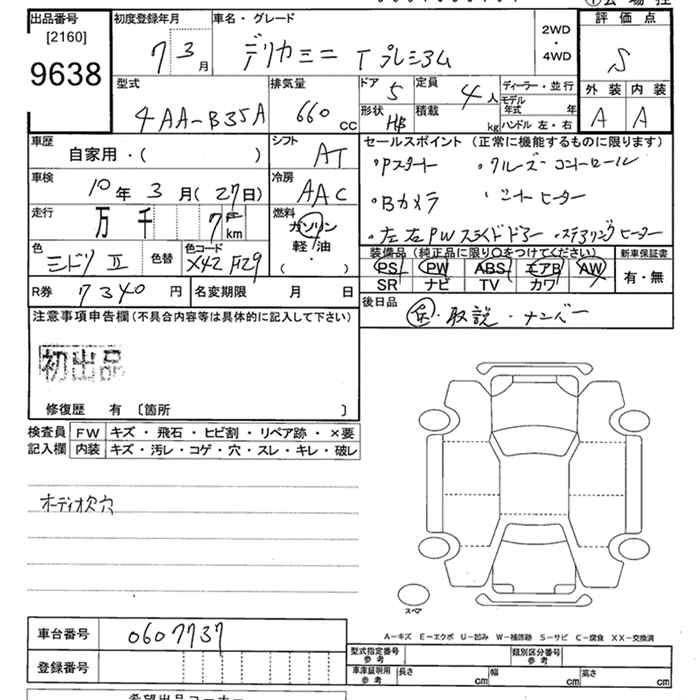 出品番号 初度登録年月 車名・グレード 評価点
[2160]
9638
7 3月 デリカミニ Tプレミアム 2WD・4WD S
型式 排気量 ドア 5 定員 4人 ディーラー・並行 外装 内装
4AA-B35A 660 cc 形状 H/B 積載 kg モデル年式 年 A A
ハンドル 左・右
車歴 自家用・( ) シフト AT セールスポイント (正常に機能するものに限ります)
・Pスタート ・クルーズコントロール
車検 10年3月(27日) 冷房 AAC ・Bカメラ ・シートヒーター
走行 万 千 7 km 燃料 ガソリン 軽油・( ) ・左右PWスライドドアー ・ステアリングヒーター
色 ミドリII 色替 色コード X42 F29 装備品 (純正品に限り○をつけてください) 新車保証書
PS PW ABS エアB AW 有・無
SR ナビ TV カワ
R券 7340円 名変期限 月 日 後日品
保・取説・ナンバー
注意事項申告欄(不具合内容等は具体的に記入して下さい)
初出品
修復歴 有 〔箇所 〕
検査員 FW キズ・飛石・ヒビ割・リペア跡・×要
記入欄 内装 キズ・汚レ・コゲ・穴・スレ・キレ・破レ
オーディオ欠穴
スペア
A－キズ E－エクボ U－凹み W－補修跡 S－サビ C－腐食 XX－交換済
車台番号 0607737
型式指定番号 参考 類別区分番号 参考
登録番号 車庫証明用 参考 長さ cm 幅 cm 高さ cm
希望出品コーナー